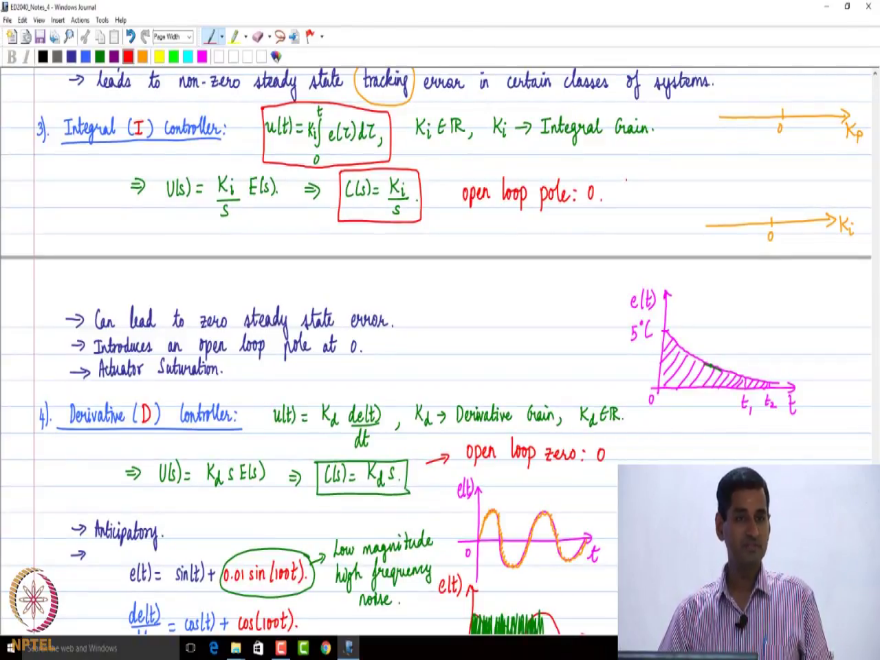 ED2040_Notes_4 - Windows Journal
File Edit View Insert Actions Tools Help
Page Width
B I
→ leads to non-zero steady state tracking error in certain classes of systems.
3). Integral (I) Controller: u(t) = Ki ∫₀ᵗ e(τ) dτ, Ki ∈ ℝ, Ki → Integral Gain.
0 Kp
⇒ U(s) = Ki/s E(s). ⇒ C(s) = Ki/s. open loop pole: 0.
0 Ki
→ Can lead to zero steady state error.
→ Introduces an open loop pole at 0.
→ Actuator Saturation.
e(t)
5°C
0 t₁ t₂ t
4). Derivative (D) Controller: u(t) = Kd de(t)/dt, Kd → Derivative Gain, Kd ∈ ℝ.
⇒ U(s) = Kd s E(s) ⇒ C(s) = Kd s. → open loop zero: 0
→ Anticipatory.
→
e(t) = sin(t) + 0.01 sin(100t).
→ Low magnitude
high frequency
noise.
e(t)
0 t
e(t)
de(t)/dt = cos(t) + cos(100t).
NPTEL